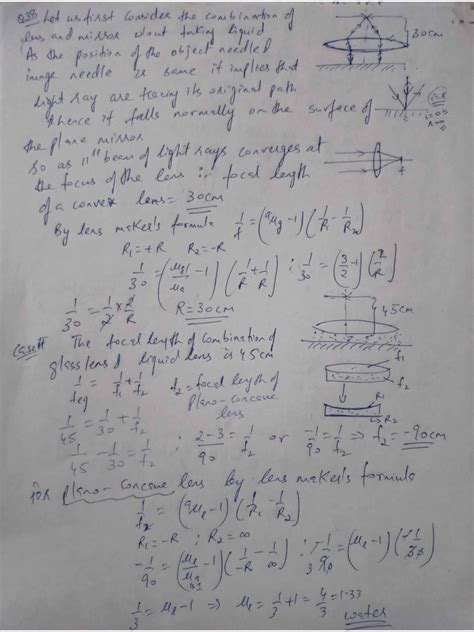 Q38 Let us first Consider the combination of
lens and mirror w/out taking liquid
30cm
As the position of the object needle &
image needle is same it implies that
light ray are tracing its original path
& hence it falls normally on the surface of
the plane mirror
So as 11" beam of light rays converges at
the focus of the lens ∴ focal length
f
of a convex lens = 30cm
By lens maker's formula 1/f = (aμg - 1)(1/R1 - 1/R2)
R1 = +R R2 = -R
1/30 = (μg/μa - 1)(1/R + 1/R) ; 1/30 = (3/2 - 1)(2/R)
1/30 = 1/2 x 2/R R = 30cm
45cm
Case II The focal length of combination of
glass lens & liquid lens is 45cm
f1
1/feq = 1/f1 + 1/f2 f2 = focal length of
plano-concave
lens
f2
R1
R2
1/45 = 1/30 + 1/f2
1/45 - 1/30 = 1/f2 ; 2-3/90 = 1/f2 or -1/90 = 1/f2 ⇒ f2 = -90cm
for plano-concave lens By lens maker's formula
1/f2 = (aμl - 1)(1/R1 - 1/R2)
R1 = -R ; R2 = ∞
-1/90 = (μl/μa - 1)(1/-R - 1/∞) ; -1/90 = (μl - 1)(-1/30)
1/3 = μl - 1 ⇒ μl = 1/3 + 1 = 4/3 = 1.33
water